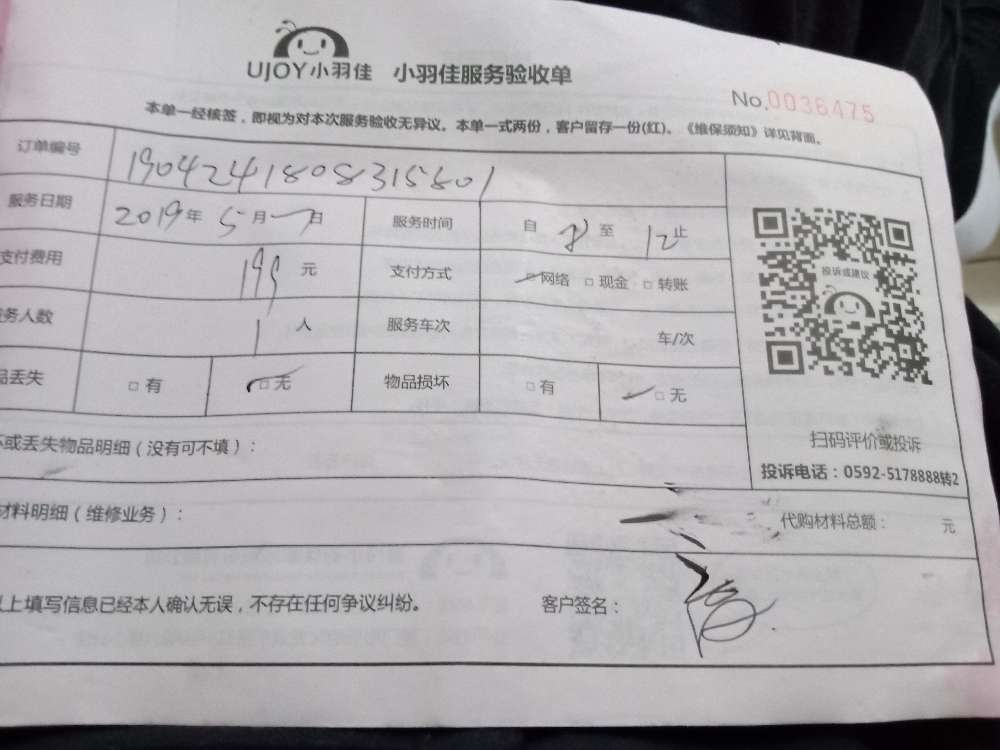 UJOY小羽佳 小羽佳服务验收单
No.0036475
本单一经核签，即视为对本次服务验收无异议。本单一式两份，客户留存一份(红)。《维保须知》详见背面。
订单编号 190424180831580 1
服务日期 2019年5月一日 服务时间 自 8 至 12 止
支付费用 199元 支付方式 □网络 □现金 □转账
务人数 1人 服务车次 车/次
品丢失 □有 □无 物品损坏 □有 □无
投诉或建议
扫码评价或投诉
投诉电话：0592-5178888转2
或丢失物品明细（没有可不填）：
材料明细（维修业务）： 代购材料总额： 元
以上填写信息已经本人确认无误，不存在任何争议纠纷。 客户签名：